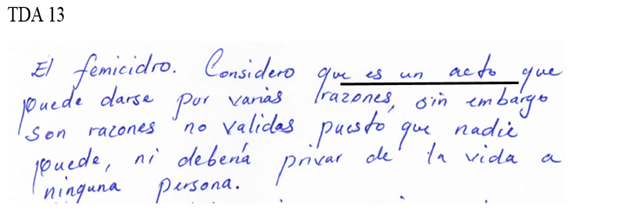 TDA 13
El femicidro. Considero que es un acto que
puede darse por varias razones, sin embargo
son razones no validas puesto que nadie
puede, ni debería privar de la vida a
ninguna persona.